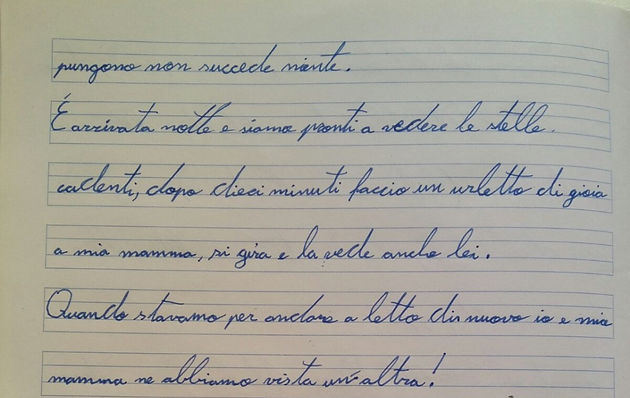 pungono non succede niente.
É arrivata notte e siamo pronti a vedere le stelle.
cadenti, dopo dieci minuti faccio un urletto di gioia
a mia mamma, si gira e la vede anche lei.
Quando stavamo per andare a letto din nuovo io e mia
mamma ne abbiamo vista un'altra!